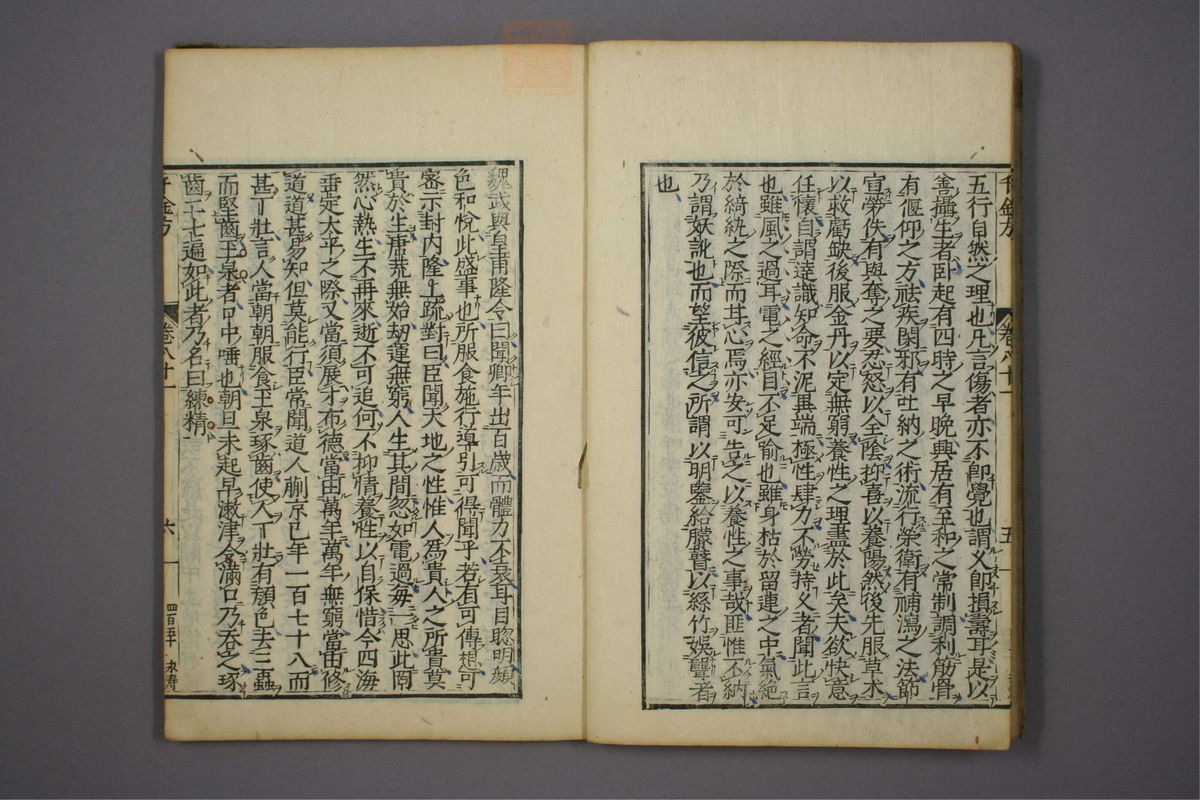 五行自然之理也凡言傷者亦不即覺也謂久即損壽耳是以
善攝生者卧起有四時之早晚興居有至和之常制調利筋骨
有偃仰之方祛疾閑邪有吐納之術流行榮衛有補瀉之法節
宣勞佚有與奪之要忍怒以全陰抑喜以養陽然後先服草木
以救虧缺後服金丹以定無窮養性之理盡於此矣夫欲快意
任懷自謂達識知命不泥異端極性肆力不勞持久者聞此言
也雖風之過耳電之經目不足喻也雖身枯於留連之中氣絶
於綺紈之際而甘心焉亦安可告之以養性之事哉匪惟不納
乃謂妖訛也而望彼信之所謂以明鑒給朦瞽以絲竹娛聾者
也
千金方
卷八十一
五
魏武與皇甫隆令曰聞卿年出百歲而體力不衰耳目聰明顔
色和悅此盛事也所服食施行導引可得聞乎若有可傳想可
密示封内隆上疏對曰臣聞天地之性惟人爲貴人之所貴莫
貴於生唐荒無始劫運無窮人生其間忽如電過每一思此罔
然心熱生不再來逝不可追何不抑情養性以自保惜今四海
垂定太平之際又當須展才布德當由萬年萬年無窮當由修
道道甚易知但莫能行臣常聞道人蒯京已年一百七十八而
甚丁壯言人當朝朝服食玉泉琢齒使人丁壯有顔色去三蟲
而堅齒玉泉者口中唾也朝旦未起早漱津令滿口乃吞之琢
齒二七遍如此者乃名曰練精
千金方
卷八十一
六
四百五十